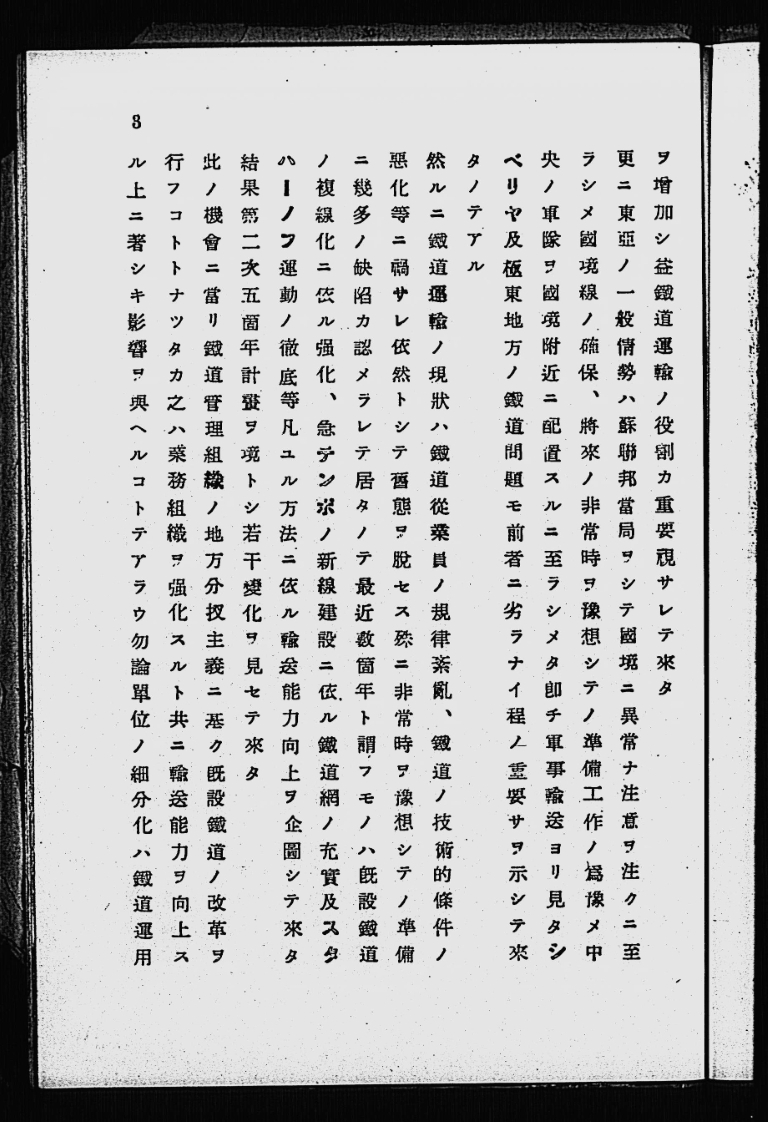 ヲ増加シ益鐵道運輸ノ役割カ重要視サレテ來タ
更ニ東亞ノ一般情勢ハ蘇聯邦當局ヲシテ國境ニ異常ナ注意ヲ注クニ至
ラシメ國境線ノ確保、將來ノ非常時ヲ豫想シテノ準備工作ノ爲豫メ中
央ノ軍隊ヲ國境附近ニ配置スルニ至ラシメタ卽チ軍事輸送ヨリ見タシ
ベリヤ及極東地方ノ鐵道問題モ前者ニ劣ラナイ程ノ重要サヲ示シテ來
タノテアル
然ルニ鐵道運輸ノ現狀ハ鐵道從業員ノ規律紊亂、鐵道ノ技術的條件ノ
惡化等ニ禍サレ依然トシテ舊態ヲ脫セス殊ニ非常時ヲ豫想シテノ準備
ニ幾多ノ缺陷カ認メラレテ居タノテ最近數箇年ト謂フモノハ旣設鐵道
ノ複線化ニ依ル强化、急テンポノ新線建設ニ依ル鐵道網ノ充實及スタ
ハーノフ運動ノ徹底等凡ユル方法ニ依ル輸送能力向上ヲ企圖シテ來タ
結果第二次五箇年計畫ヲ境トシ若干變化ヲ見セテ來タ
此ノ機會ニ當リ鐵道管理組織ノ地方分授主義ニ基ク旣設鐵道ノ改革ヲ
行フコトトナツタカ之ハ業務組織ヲ强化スルト共ニ輸送能力ヲ向上ス
ル上ニ著シキ影響ヲ與ヘルコトテアラウ勿論單位ノ細分化ハ鐵道運用
3